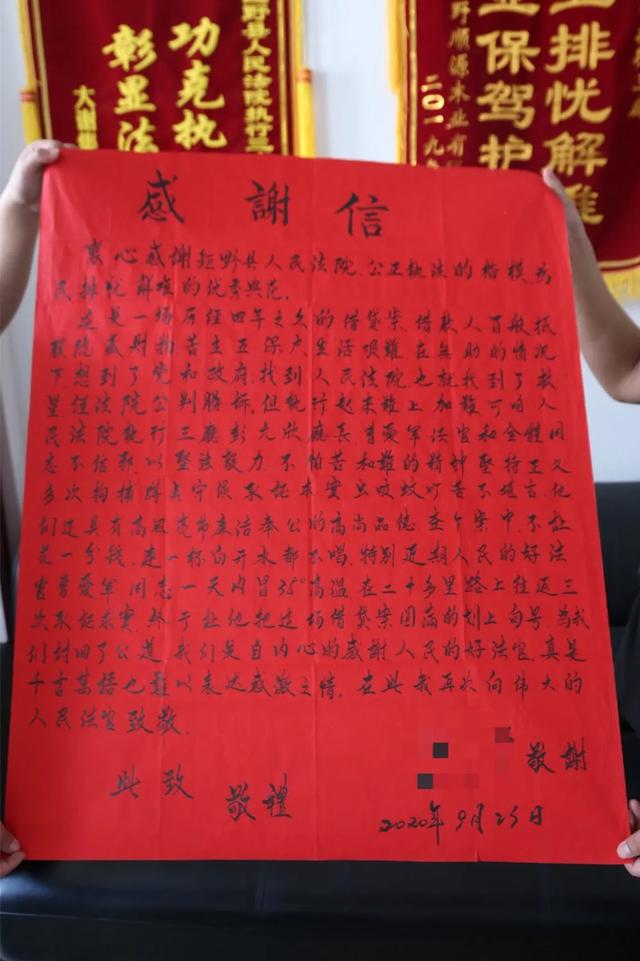 野县人民法院执行三
功克执
彰显法
大谢
排忧解难
保驾护
野顺源木业有
二〇一九
感謝信
衷心感謝钜野县人民法院,公正执法的楷模,为
民排忧解难的优秀典范。
这是一场历经四年之久的借贷案,借款人百般抵
赖隐藏财物苦主五保户,生活艰难在無助的情况
下想到了党和政府,找到人民法院也就找到了救
星经法院公判勝訴,但执行起来难上加難可咱人
民法院执行三廳彭允欣廳長,曹爱军法官和全體同
志不信邪,以堅強毅力,不怕苦和難的精神堅持正义
多次拘捕蹲点守候取证求实虫咬蚊叮苦不堪言,他
们还具有高風亮节廉洁奉公的高尚品德个案中,不让
花一分钱,連一杯白开水都不喝,特别近期人民的好法
官曹爱军同志一天内冒35°高温在二十多里路上往返三
次取证求實,終于让他把这场借贷案园满的划上句号,為我
们討回了公道,我们发自内心的感謝人民的好法官,真是
千言萬語也难以表达感激之情。在此我再次向偉大的
人民法官致敬。
敬謝
此致
敬禮
2020年9月25日